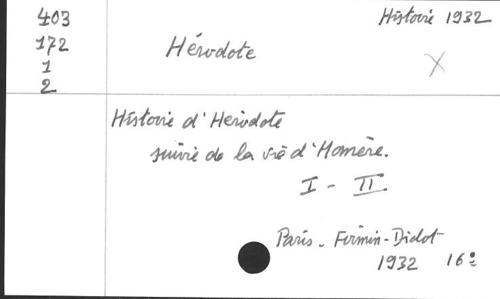 403
172
1
2
Histoire 1932
Hérodote
X
Histoire d'Hérodote
suivie de la vie d'Homère.
I - II
Paris - Firmin-Didot
1932 16º